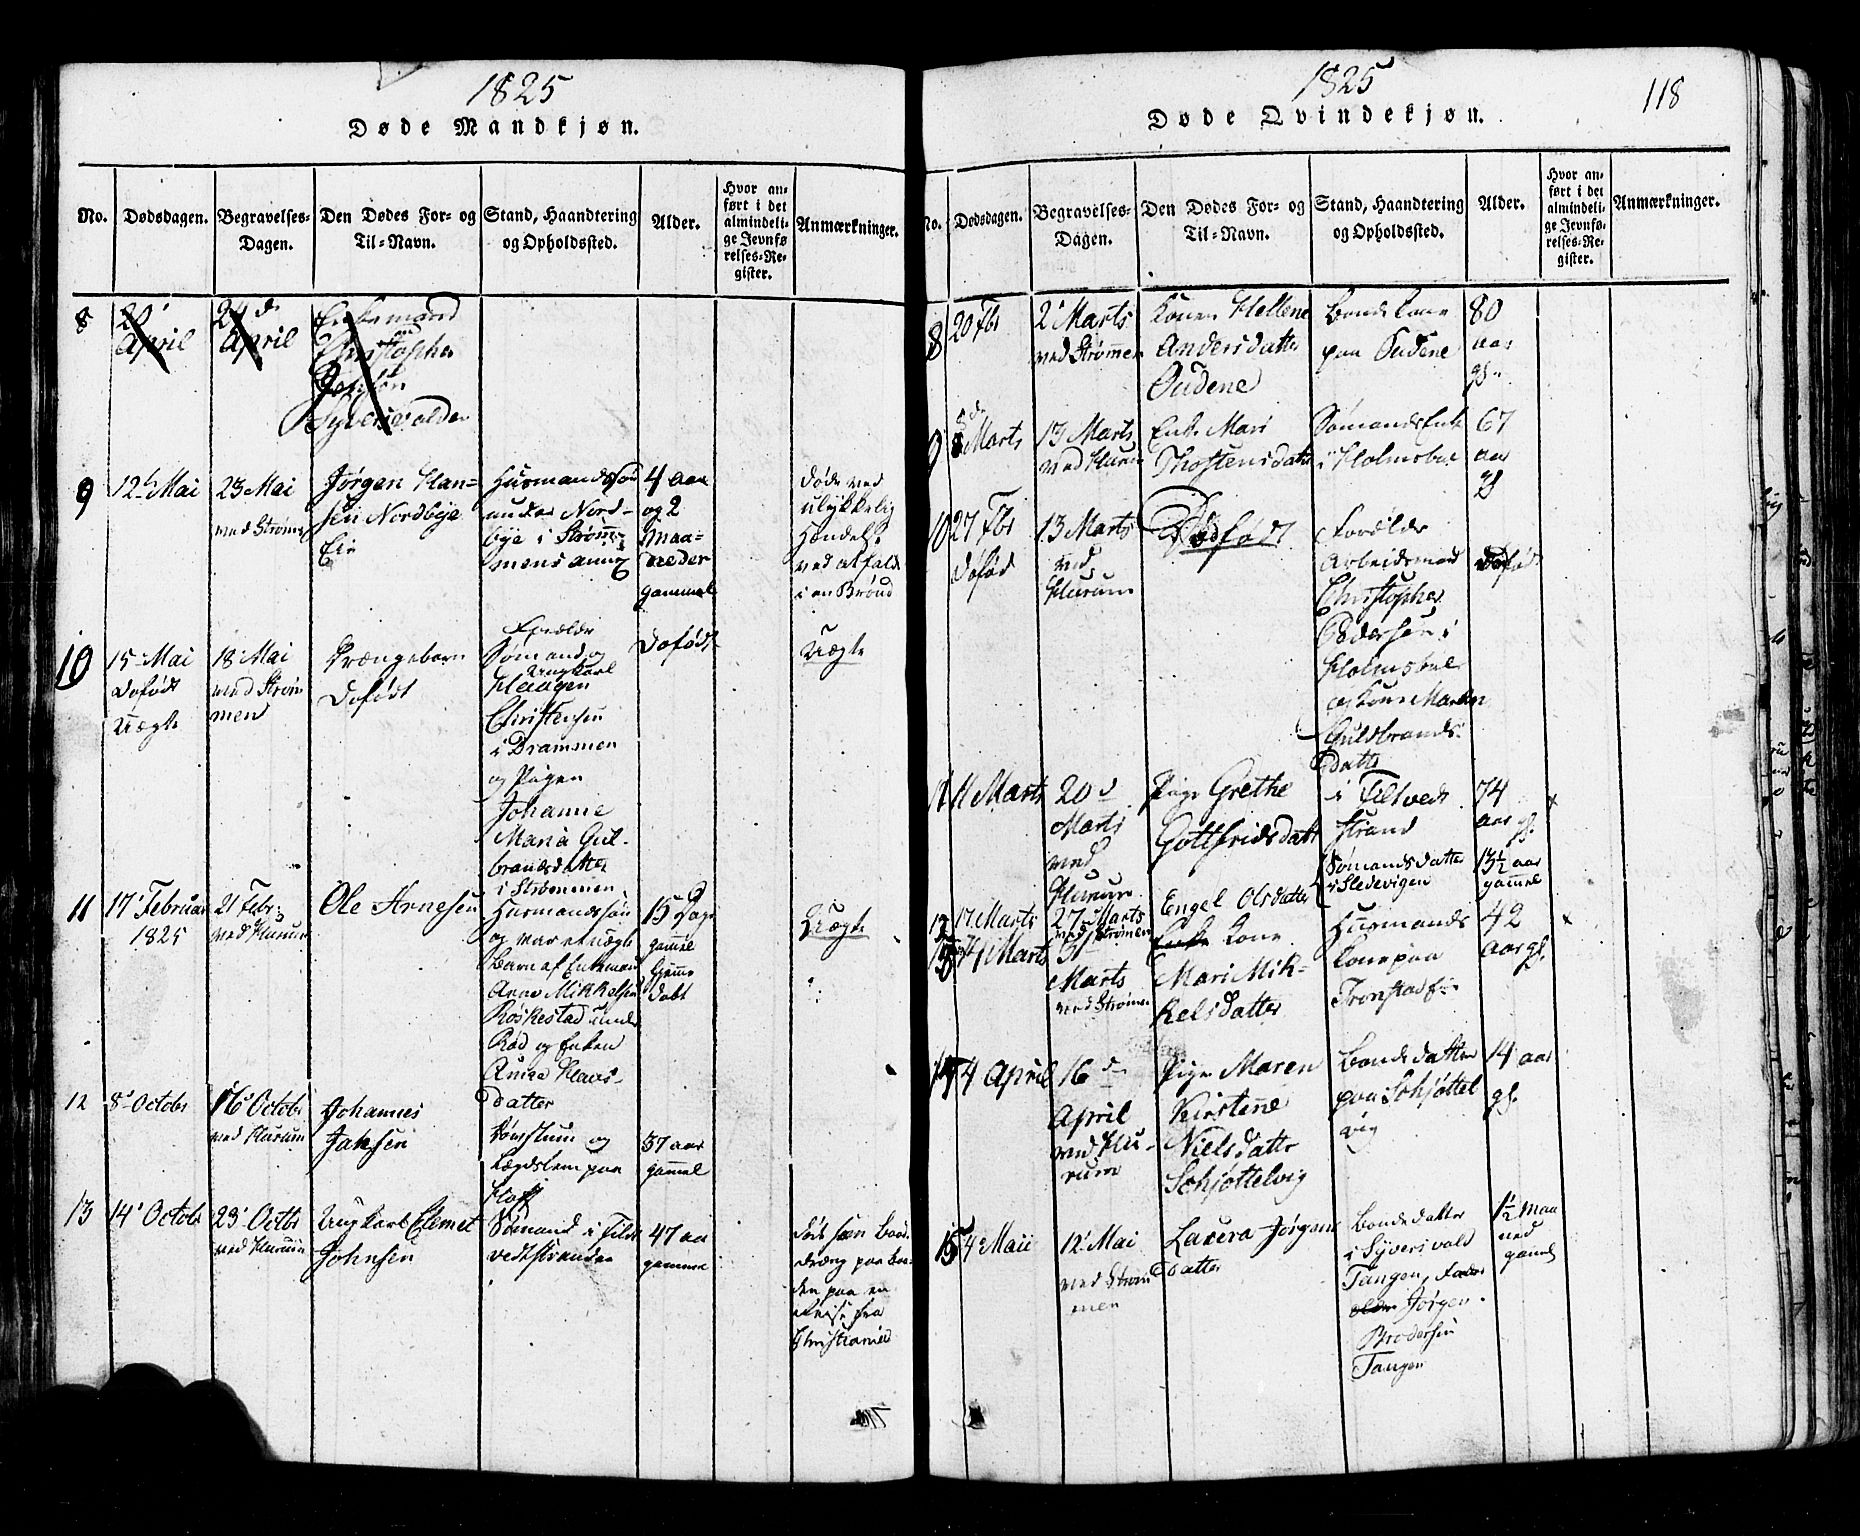 1825
Døde Mandkjøn.
No. Dødsdagen. Begravelses-Dagen. Den Dødes For- og Til-Navn. Stand, Haandtering og Opholdssted. Alder. Hvor anført i det almindelige Jevnførelses-Register. Anmærkninger.
8
20' April
24 d. April
Enkemand
Christopher
Syversvolden
9
12 Mai
23 Mai
ved Strømm
Jørgen Han=
sen Nordbye
Eie
Husmandssøn
under Nord-
bye i Strøm-
mens annex
4 aar
og 2
Maa=
neder
gammel
Døde ved
ulykkelig
Hændelse
ved at falde
i en Brønd
10
15 Mai
Døfødt
Uægte
18 Mai
ved Strøm
men
Drængebarn
Døfødt
Forældre
Sømand og
Ungkarl
Haagen
Christensen
i Drammen
og Pigen
Johanne
Maria Gul-
brandsdatter
i Strømmen
Døfødt
Uægte
11
17' Februar
1825
21 Febr.
ved Hurum
Ole Arnesen
Husmandssøn
og var et uægte
Barn af Enkemand
Arne Mikkelsen
Roskestad under
Rød og Enken
Anne Klaus-
datter
15 Dage
gammel
hjemme
døbt
Uægte
12
8' Octobr
16' Octobr
ved Hurum
Johannes
Jahsen
Dømstum og
Lægdslem paa
37 aar
gammel
13
14' Octobr
23' Octbr
ved Hurum
Ungkarl Clemet
Johnsen
Sømand i Fild
vedtstranden
47 aar
gammel
paa en
Reise fra
Christiania
1825
118
Døde Qvindekjøn.
No. Dødsdagen. Begravelses-Dagen. Den Dødes For- og Til-Navn. Stand, Haandtering og Opholdssted. Alder. Hvor anført i det almindelige Jevnførelses-Register. Anmærkninger.
8
20 Fbr
2' Marts
ved Strømmen
Konen Hellene
Andersdatter
Oudene
Bonde Kone
paa Oudene
80
aar
gl.
9
8 d. Marts
13 Marts
ved Hurum
Enke Mari
Thostensdatter
Sømands Enke
i Holmsbue
67
aar
gl
10
27 Fbr
Døfød
13 Marts
ved
Hurum
Dødfødt
Forældre
Arbeidsmand
Christopher
Pedersen i
Holmsbue
og Kone Maren
Guldbrands-
datter
Døfød
11
11 Marts
20 d
Marts
ved
Hurum
Pige Grethe
Gottfridsdatter
i Filtvedt
strand
74
aar gl.
x
12
17 Marts
27 Marts
ved Strømen
Engel Olsdatter
Sømandsdatter
i Sledevigen
13½ aar
gammel
13
Marts
31
Marts
ved Strømen
Enke Kone
Mari Mik=
kelsdatter
Husmands
Kone paa
42
aar gl.
x
14
4 April
16 d.
April
ved Hu-
rum
Pige Maren
Kirstene
Nielsdatter
Schjøttelvig
Bondedatter
paa Schjøttel
vig
14 aar
gl.
15
4 Maii
12' Mai
ved Strøm
men
Laurra Jørgens
datter
Bondedatter
i Syversvold
Tangen, Fader
Jørgen
Brodersen
Tangen
1½ Maa
ned
gamel